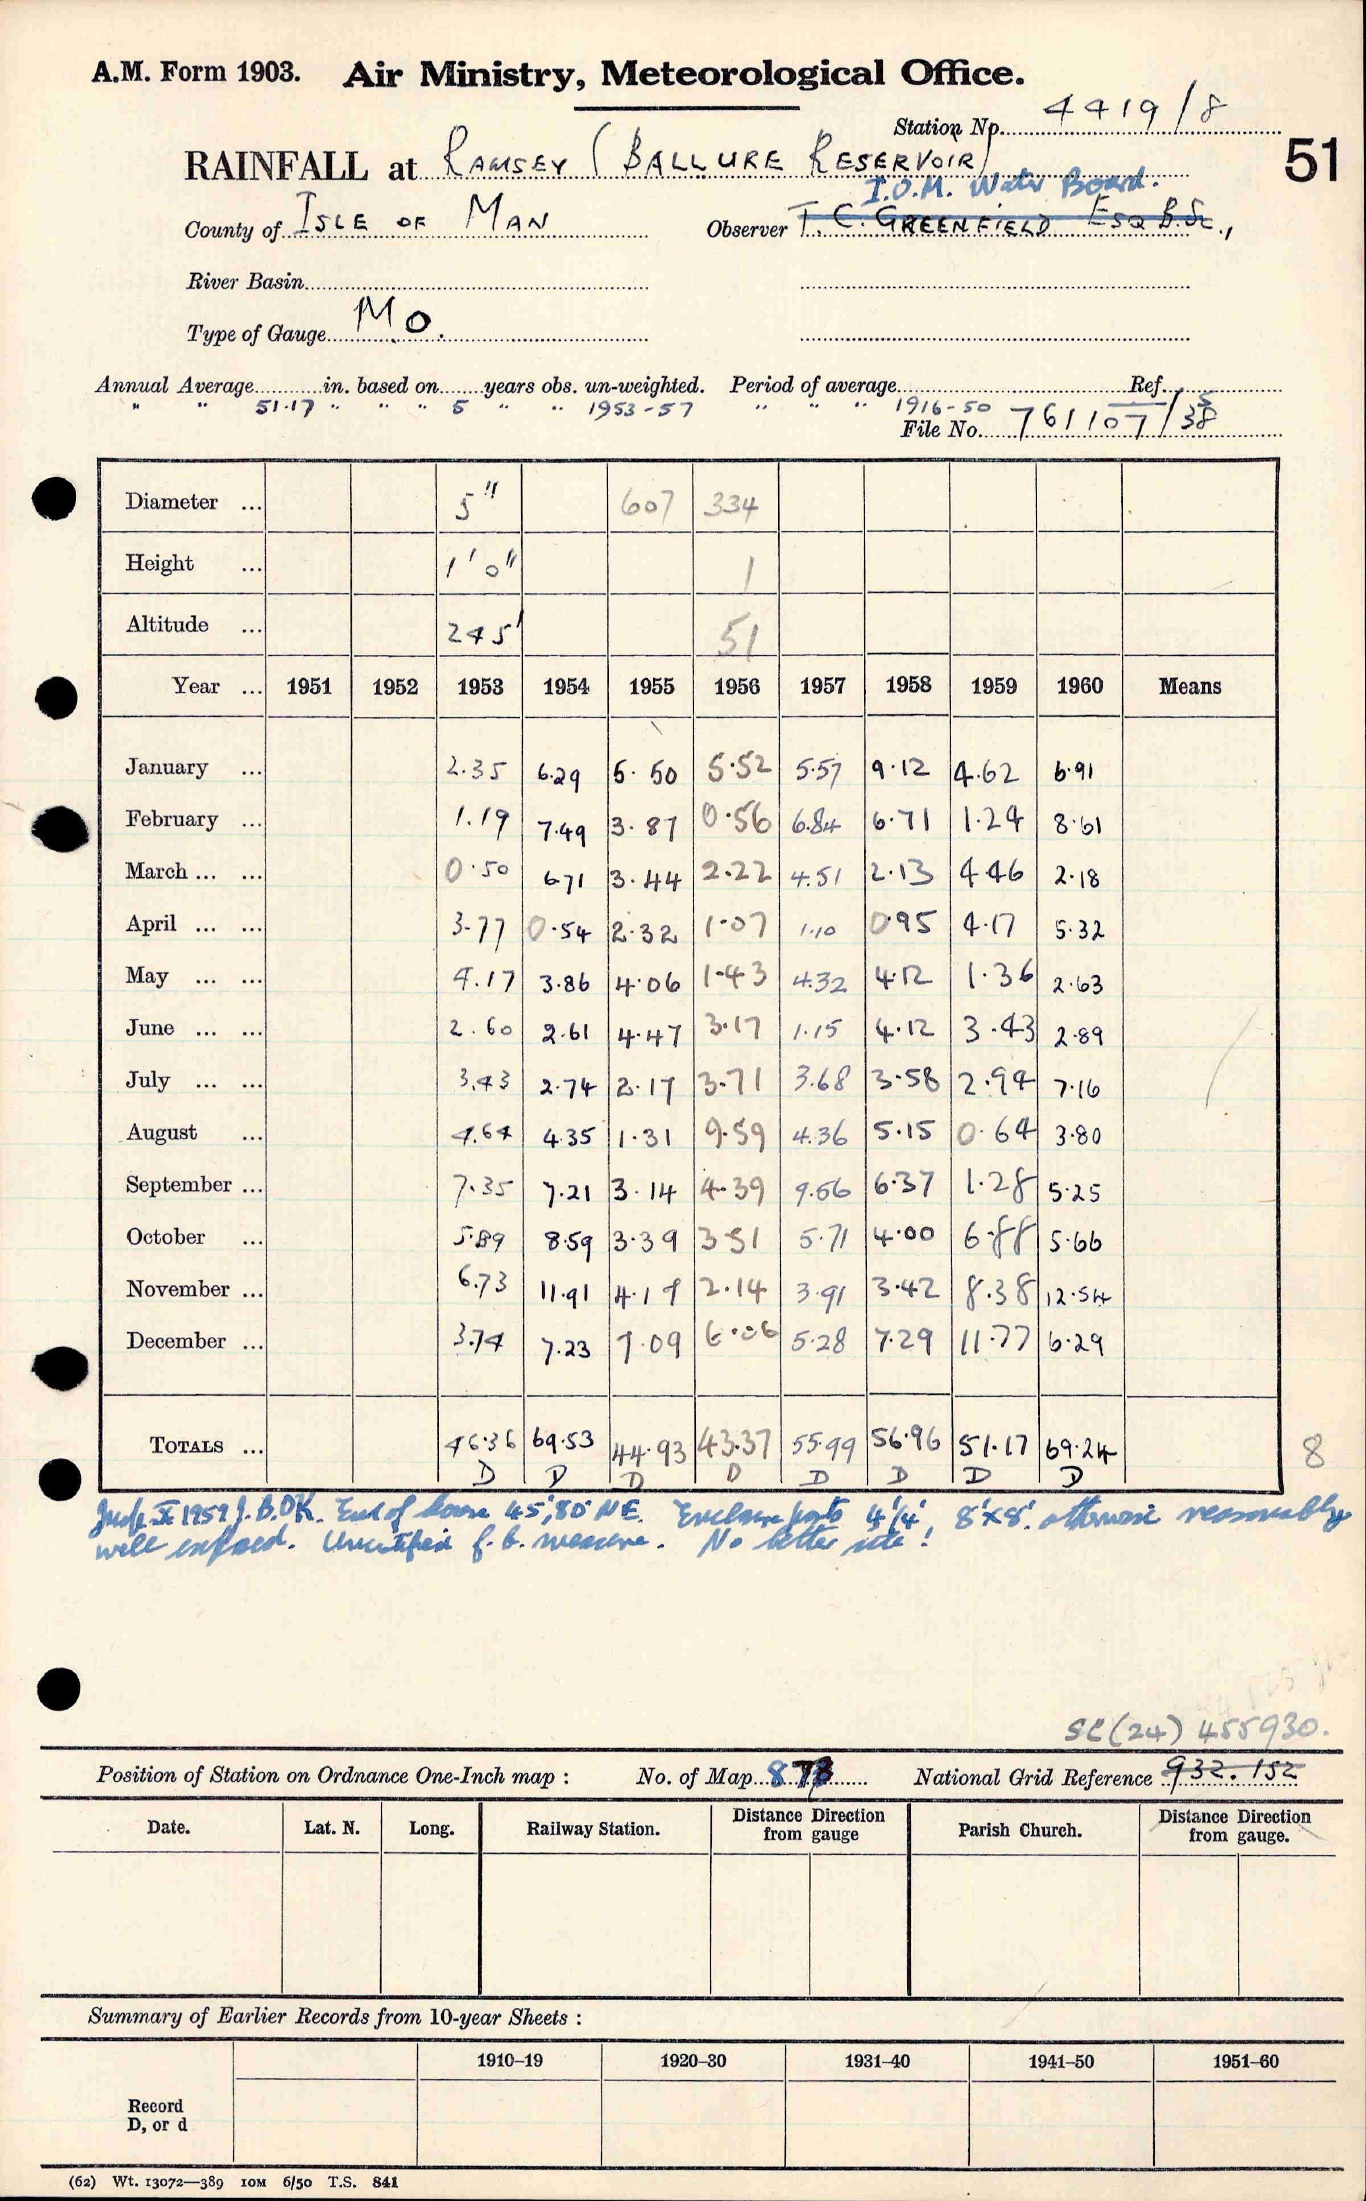 A.M. Form 1903. Air Ministry, Meteorological Office.
Station No. 4419/8
51
RAINFALL at RAMSEY (BALLURE RESERVOIR)
I.O.M. Water Board.
County of ISLE OF MAN Observer T. C. GREENFIELD ESQ B.Sc.,
River Basin
Type of Gauge MO.
Annual Average in. based on years obs. un-weighted. Period of average Ref.
" " 51.17 " " " 5 " " 1953-57 " " " 1916-50
File No. 761107/38
Diameter ... 5" 607 334
Height ... 1'0" 1
Altitude ... 245' 51
Year ... 1951 1952 1953 1954 1955 1956 1957 1958 1959 1960 Means
January ... 2.35 6.29 5.50 5.52 5.57 9.12 4.62 6.91
February ... 1.19 7.49 3.87 0.56 6.84 6.71 1.24 8.61
March ... ... 0.50 6.71 3.44 2.22 4.51 2.13 4.46 2.18
April ... ... 3.77 0.54 2.32 1.07 1.10 0.95 4.17 5.32
May ... ... 4.17 3.86 4.06 1.43 4.32 4.12 1.36 2.63
June ... ... 2.60 2.61 4.47 3.17 1.15 4.12 3.43 2.89
July ... ... 3.43 2.74 2.17 3.71 3.68 3.58 2.94 7.16
August ... 4.64 4.35 1.31 9.59 4.36 5.15 0.64 3.80
September ... 7.35 7.21 3.14 4.39 9.56 6.37 1.28 5.25
October ... 5.89 8.59 3.39 3.51 5.71 4.00 6.88 5.66
November ... 6.73 11.91 4.17 2.14 3.91 3.42 8.38 12.54
December ... 3.74 7.23 7.09 6.06 5.28 7.29 11.77 6.29
TOTALS ... 46.36 69.53 44.93 43.37 55.99 56.96 51.17 69.24
D D D D D D D D
8
Insp. X 1959 J.B.DK. End of house 45', 80' NE. Enclosure posts 4'/4', 8'x8'. otherwise reasonably
well exposed. Uncertified g. measure. No better site!
SC(24) 455930.
Position of Station on Ordnance One-Inch map : No. of Map 87 National Grid Reference 932.152
Date. Lat. N. Long. Railway Station. Distance Direction from gauge Parish Church. Distance Direction from gauge.
Summary of Earlier Records from 10-year Sheets :
1910–19 1920–30 1931–40 1941–50 1951–60
Record
D, or d
(62) Wt. 13072—389 10M 6/50 T.S. 841